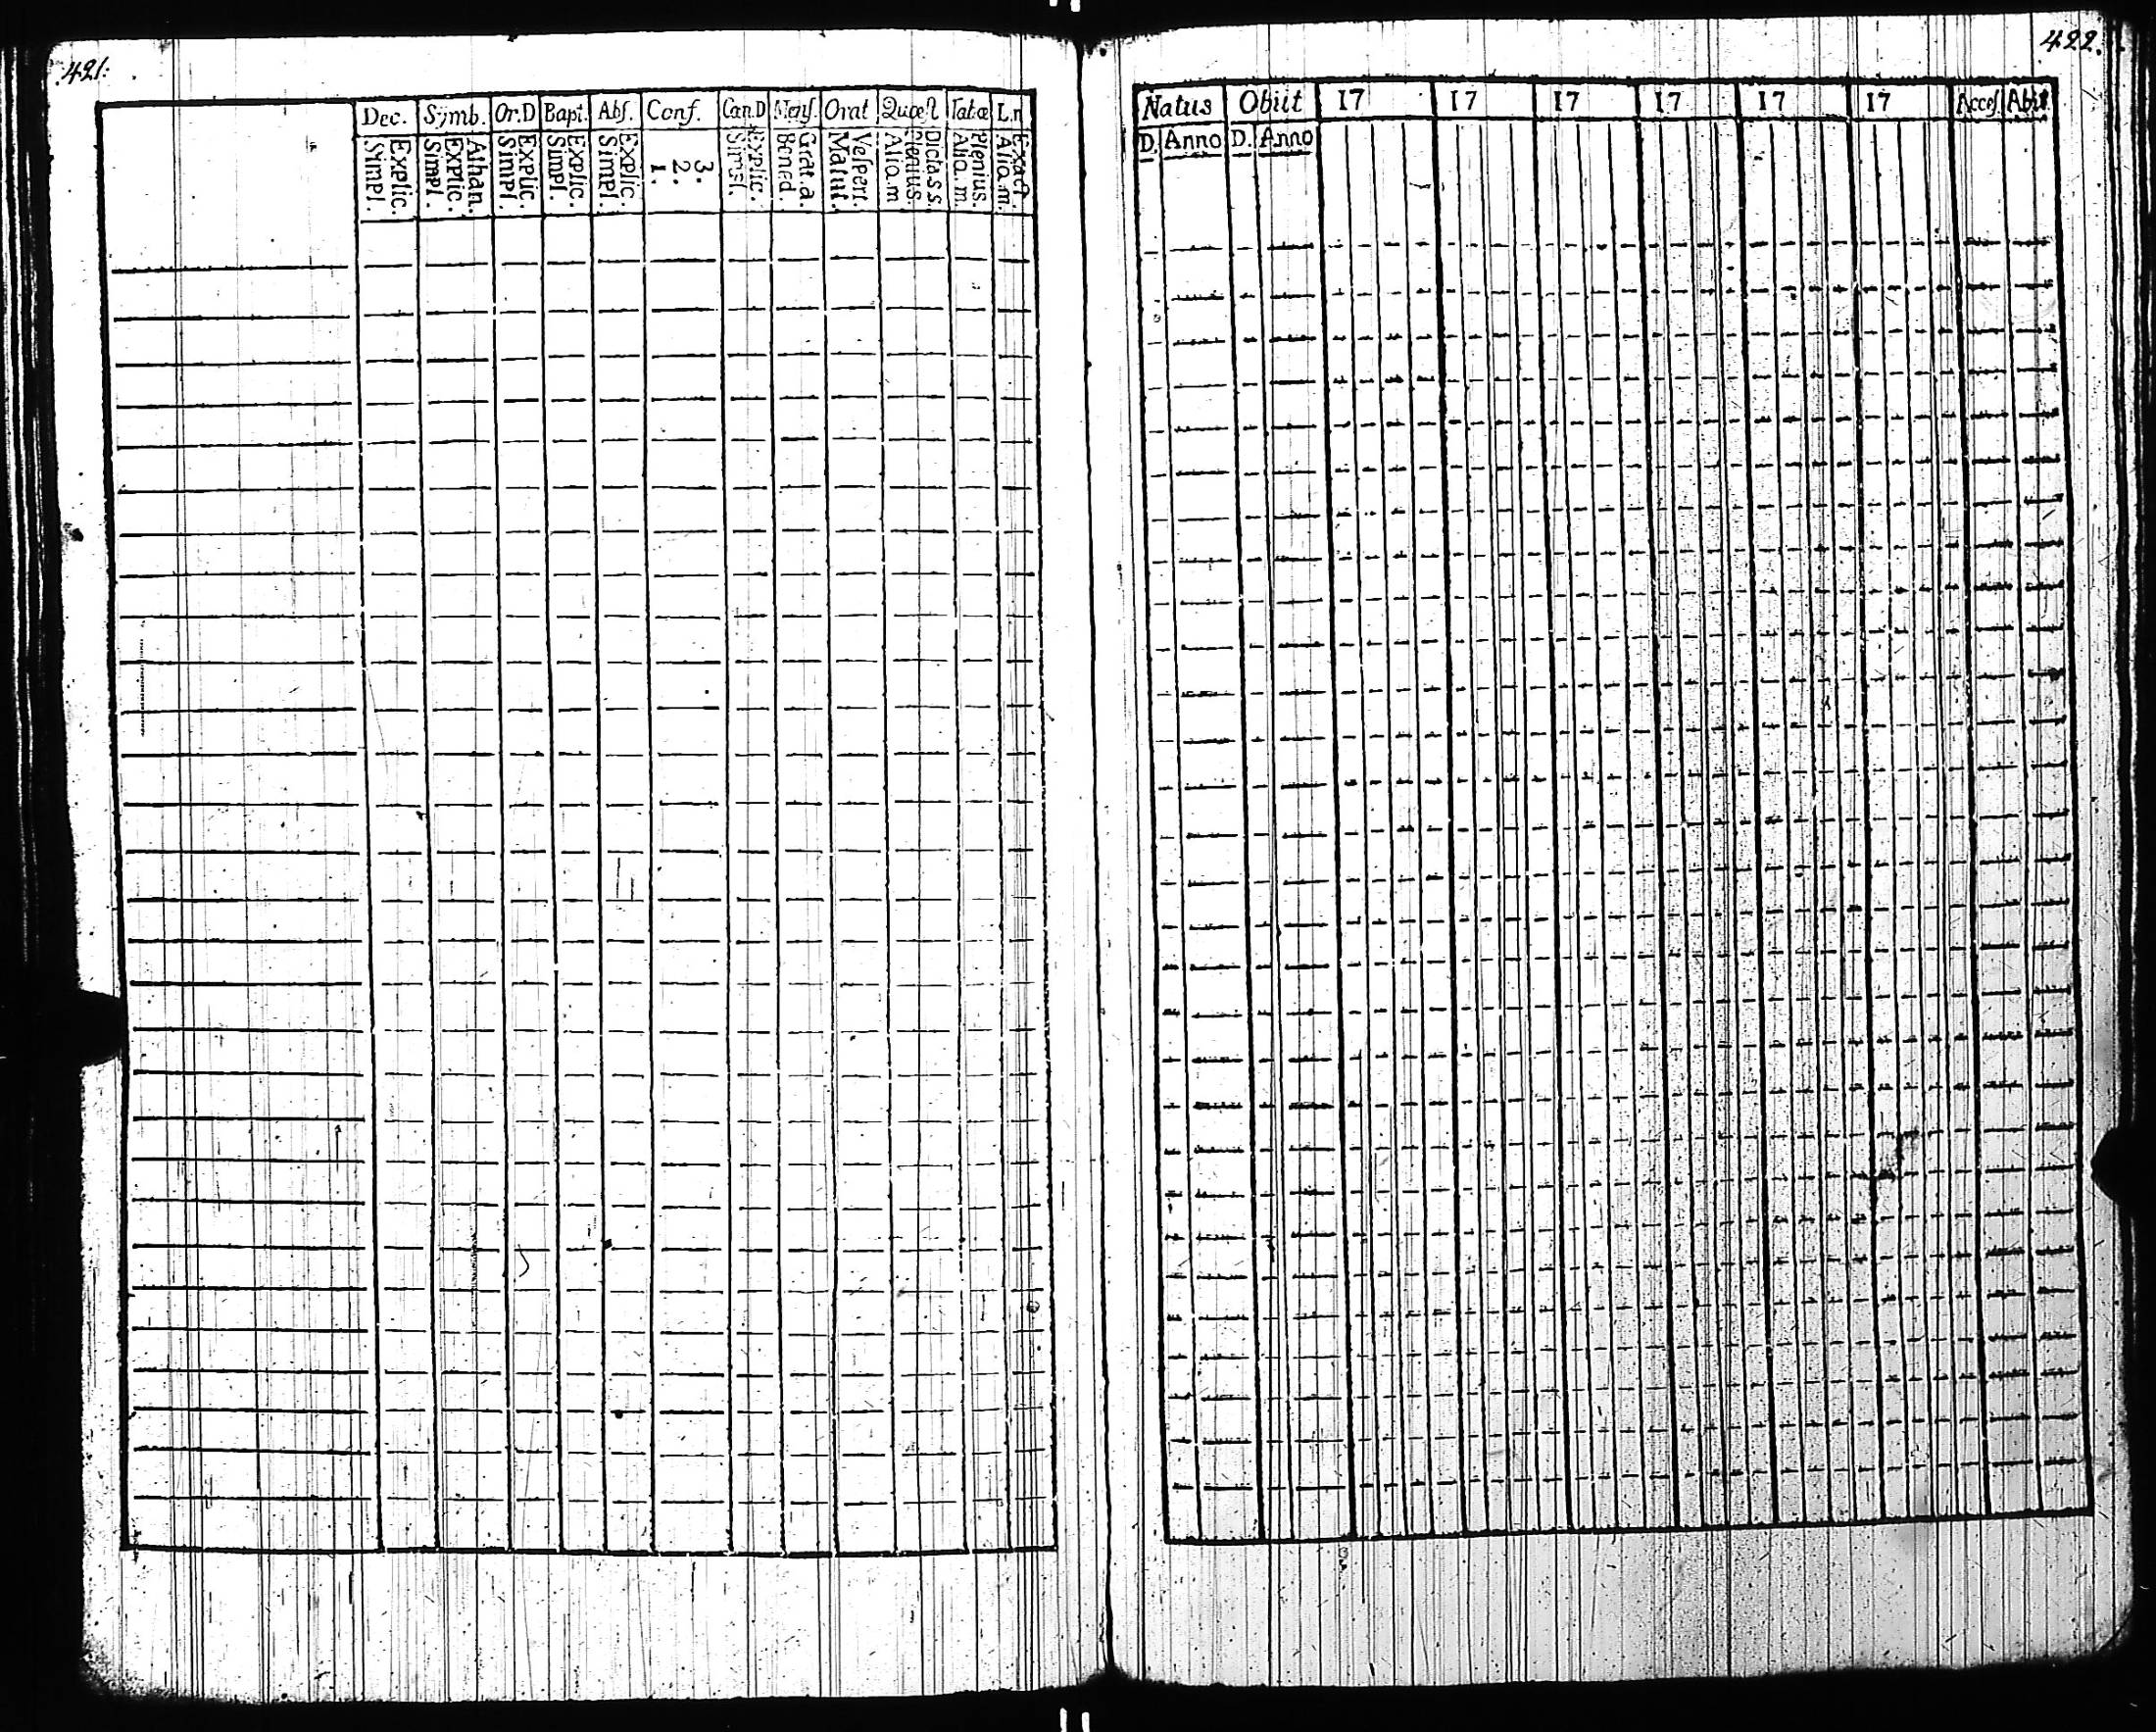 421.
Dec. Symb. Or.D Bapt. Abs. Conf. Can.D Mens. Orat Quæst Tabæ L.n
Explic. Simpl. Athan. Explic. Simpl. Explic. Simpl. Explic. Simpl. Explic. Simpl. 3. 2. 1. Explic. Simpl. Grat.a. Bened. Vespert. Matut. Dicta.s.s. Plenius. Aliq.m Plenius. Aliq.m. Exact. Aliq.m.
422.
Natus Obiit 17 17 17 17 17 17 Acces. Abit
D. Anno D. Anno